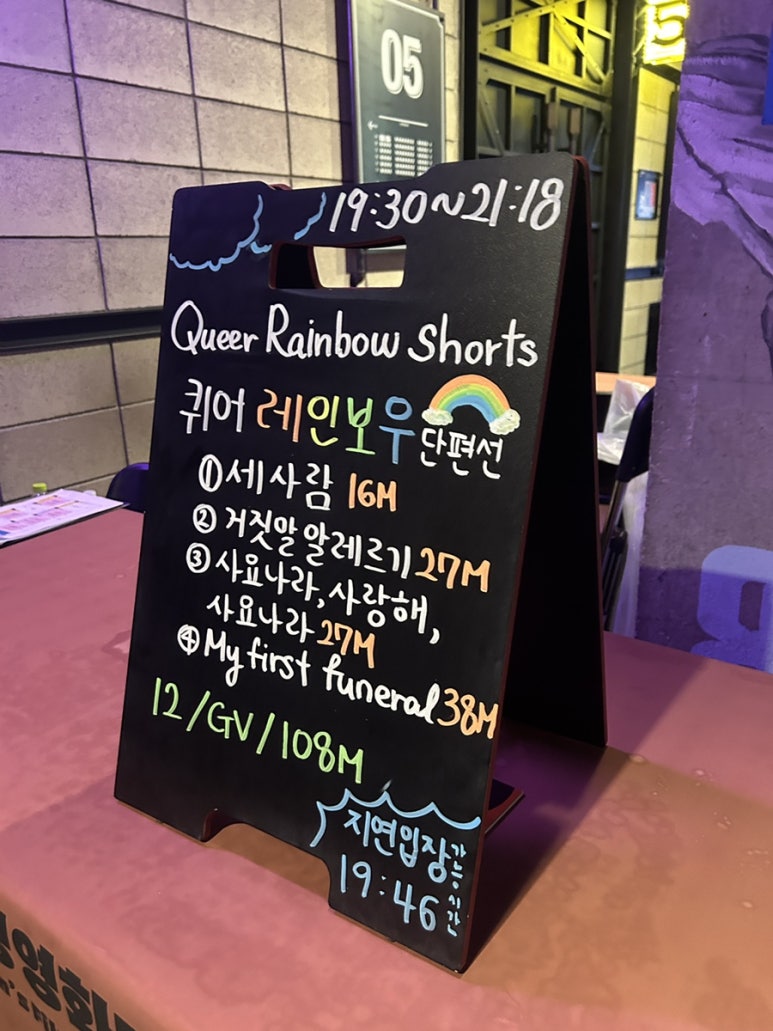 05
5
19:30~21:18
Queer Rainbow Shorts
퀴어 레인보우 단편선
① 세 사람 16M
② 거짓말 알레르기 27M
③ 사요나라, 사랑해,
사요나라 27M
④ My first funeral 38M
12/GV/108M
지연입장 가능시간
19:46
영화